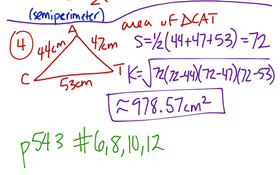 (semiperimeter)
area of ΔCAT
④
A
44cm
47cm
C
T
53cm
S=½(44+47+53)=72
K=√72(72-44)(72-47)(72-53)
≈978.57cm²
p543 #6,8,10,12